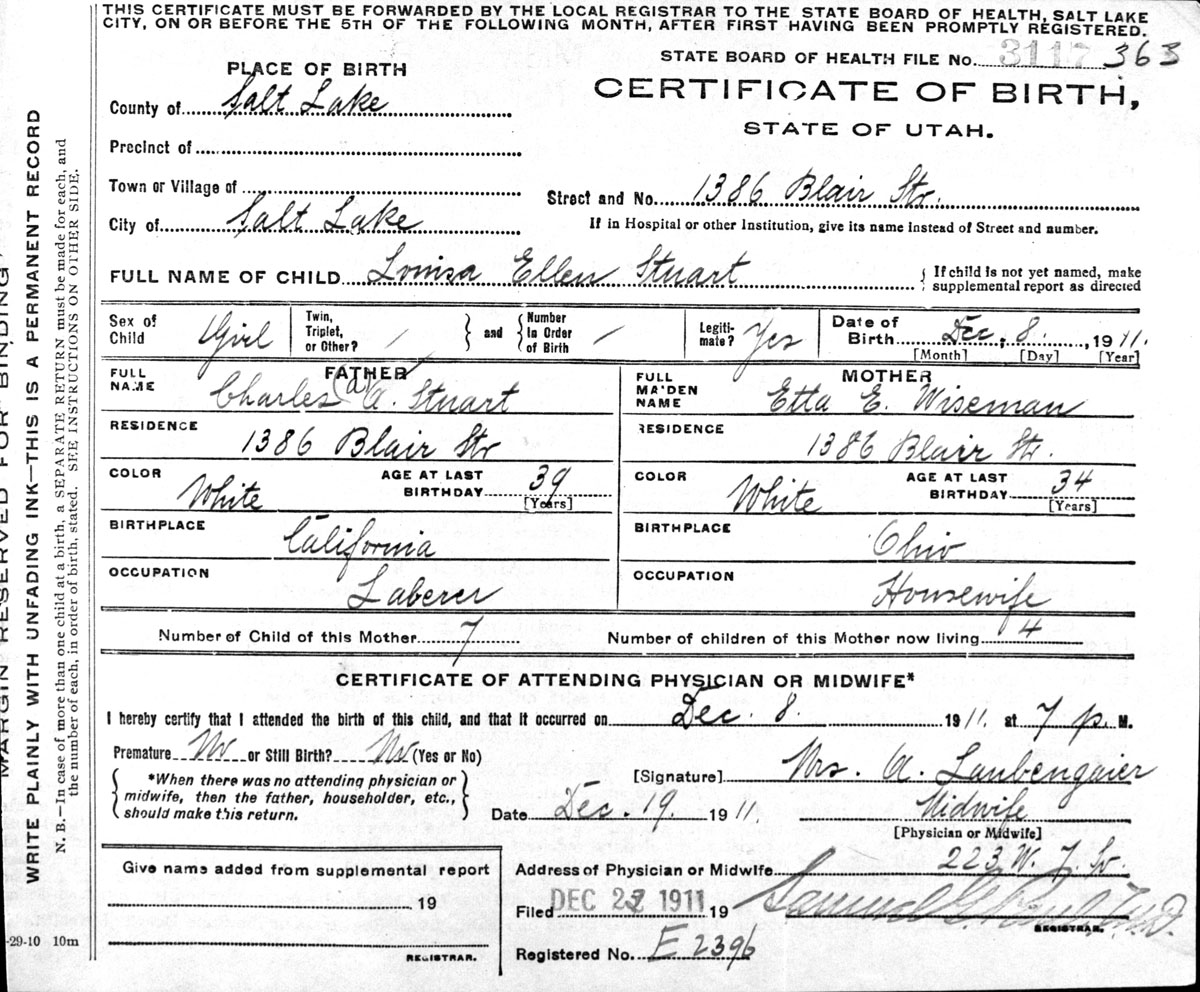 THIS CERTIFICATE MUST BE FORWARDED BY THE LOCAL REGISTRAR TO THE STATE BOARD OF HEALTH, SALT LAKE
CITY, ON OR BEFORE THE 5TH OF THE FOLLOWING MONTH, AFTER FIRST HAVING BEEN PROMPTLY REGISTERED.
STATE BOARD OF HEALTH FILE No. 3117 363
PLACE OF BIRTH
CERTIFICATE OF BIRTH,
County of Salt Lake
STATE OF UTAH.
Precinct of
Town or Village of
Street and No. 1386 Blair Str.
City of Salt Lake
If in Hospital or other Institution, give its name instead of Street and number.
FULL NAME OF CHILD Louisa Ellen Stuart
{ If child is not yet named, make
supplemental report as directed
Sex of Child Girl Twin, Triplet, or Other? / } and { Number In Order of Birth / Legiti-mate? Yes Date of Birth Dec. 8. , 1911.
[Month] [Day] [Year]
FATHER MOTHER
FULL NAME Charles (a) A. Stuart FULL MAIDEN NAME Etta E. Wiseman
RESIDENCE 1386 Blair Str RESIDENCE 1386 Blair Str.
COLOR White AGE AT LAST BIRTHDAY 39 [Years] COLOR White AGE AT LAST BIRTHDAY 34 [Years]
BIRTHPLACE California BIRTHPLACE Ohio
OCCUPATION Laberer OCCUPATION Housewife
Number of Child of this Mother 7 Number of children of this Mother now living 4
CERTIFICATE OF ATTENDING PHYSICIAN OR MIDWIFE*
I hereby certify that I attended the birth of this child, and that it occurred on Dec. 8. 1911. at 7 p. M.
Premature No or Still Birth? No (Yes or No)
*When there was no attending physician or
midwife, then the father, householder, etc.,
should make this return.
[Signature] Mrs. A. Laubengaier
Date Dec. 19. 1911. Midwife
[Physician or Midwife]
Address of Physician or Midwife 223 W. 7 So.
Give name added from supplemental report
19
REGISTRAR.
Filed DEC 22 1911 19 Samuel G. Paul M.D.
REGISTRAR.
Registered No. E 2396
-29-10 10m
MARGIN RESERVED FOR BINDING
WRITE PLAINLY WITH UNFADING INK—THIS IS A PERMANENT RECORD
N. B.—In case of more than one child at a birth, a SEPARATE RETURN must be made for each, and
the number of each, in order of birth, stated. SEE INSTRUCTIONS ON OTHER SIDE.